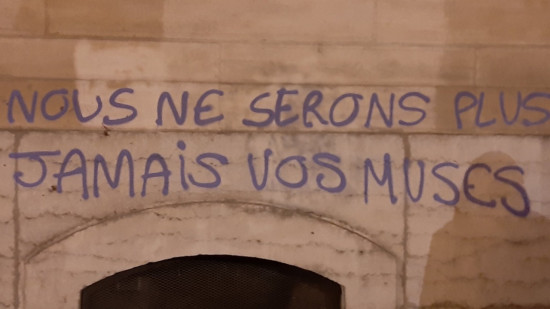 NOUS NE SERONS PLUS
JAMAIS VOS MUSES